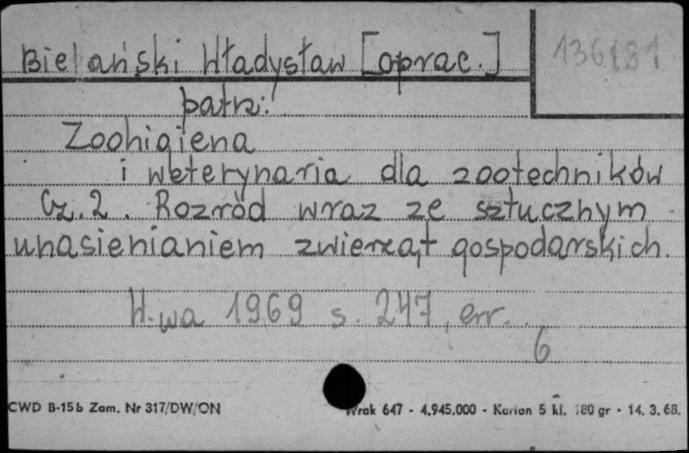 Bielański Władysław [oprac.]
136181
patrz:
Zoohigiena
i weterynaria dla zootechników
Cz. 2. Rozród wraz ze sztucznym
unasienianiem zwierząt gospodarskich.
W-wa 1969 s. 247, err.
6
CWD B-15b Zam. Nr 317/DW/ON
Wrak 647 - 4.945.000 - Karton 5 kl. 180 gr - 14. 3. 68.